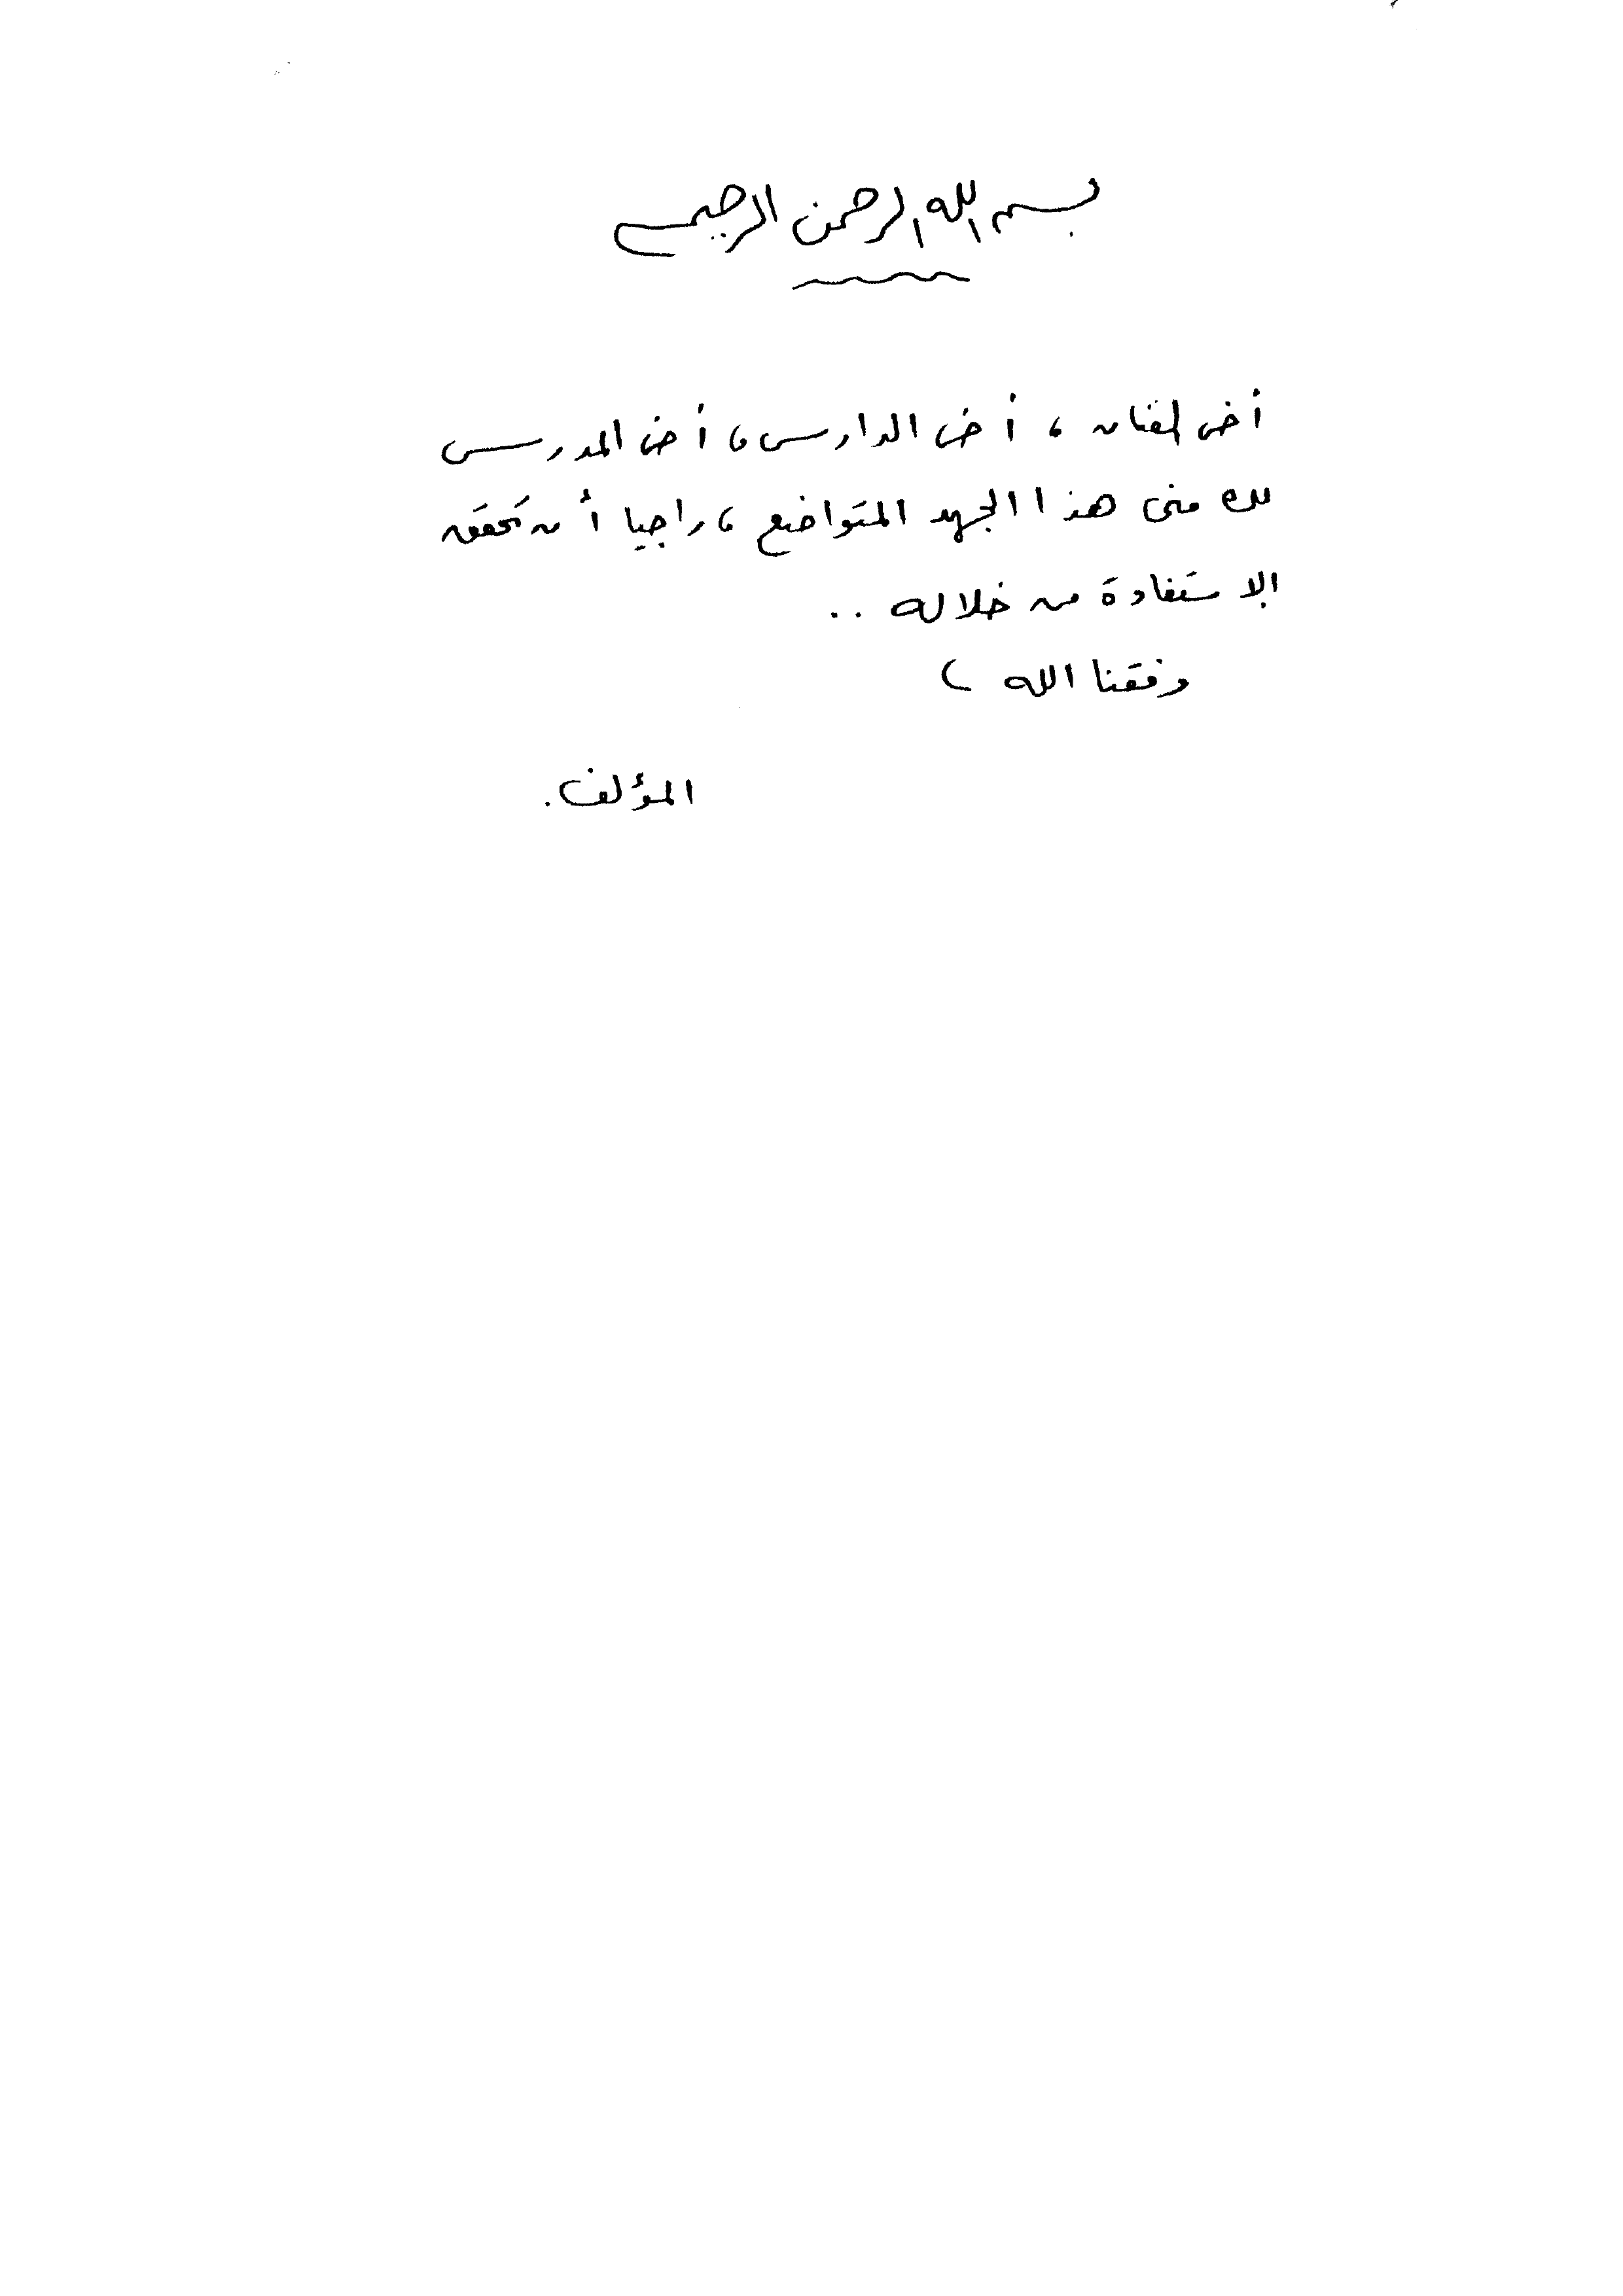 بسم الله الرحمن الرحيم
أخي الفنان ، أخي الدارس ، أخي المدرس
لك مني هذا الجهد المتواضع ، راجيا أن تحقق
الاستفادة من خلاله ..
وفقنا الله ،
المؤلف .